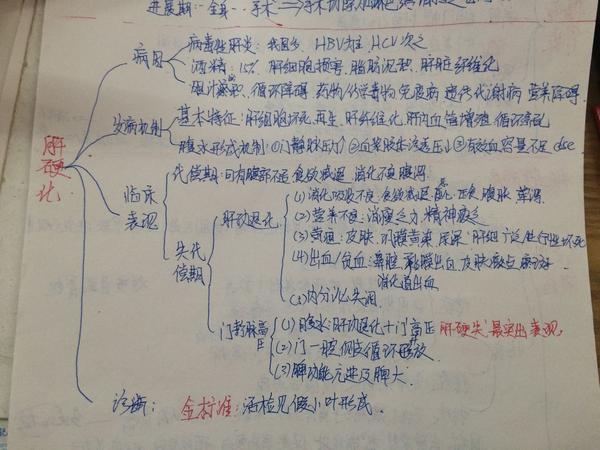 进展期:
肝硬化
病因
病毒性肝炎: 我国多, HBV为主, HCV次之
酒精: 15% 肝细胞损害, 脂肪沉积, 肝脏纤维化
胆汁淤积, 循环障碍 药物/化学毒物 免疫病 遗传代谢病 营养障碍.
发病机制
基本特征: 肝细胞坏死, 再生, 肝纤维化, 肝内血管增殖, 循环紊乱
腹水形成机制: ①门静脉压力↑ ②血浆胶体渗透压↓ ③有效血容量不足
临床表现
代偿期: 可有腹部不适 食欲减退 消化不良 腹泻
失代偿期
肝功退化
(1) 消化吸收不良. 食欲减退 恶心 厌食 腹胀
(2) 营养不良: 消瘦 乏力 精神萎靡
(3) 黄疸: 皮肤、巩膜黄染 尿深 肝细胞
(4) 出血/贫血: 鼻腔 黏膜出血, 皮肤
消化道出血
(5) 内分泌失调
门静脉高压
(1) 腹水: 肝功退化+门高压 肝硬失"最突出表现
(2) 门-腔侧支循环开放.
(3) 脾功能亢进及脾大
诊断: 金标准: 活检见假小叶形成.